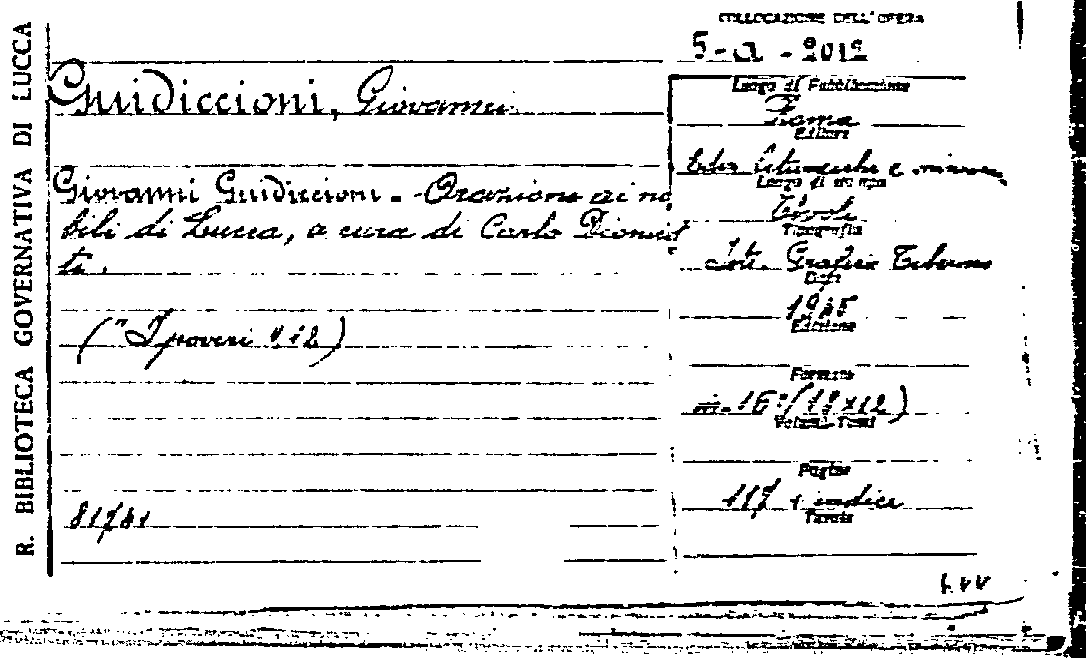 R. BIBLIOTECA GOVERNATIVA DI LUCCA
COLLOCAZIONE DELL'OPERA
5-a-2012
Guidiccioni, Giovanni.
Giovanni Guidiccioni - Orazione ai no
bili di Lucca, a cura di Carlo Dionisot
ti.
("I poveri
81741
Luogo di Pubblicazione
Roma
Editore
Ediz.
Luogo di stampa
Tivoli
Tipografia
Grafica Tiberina
Data
1945
Edizione
Formato
in-16°(19x12)
Volumi-Tomi
Pagine
117 + indice
Tavole